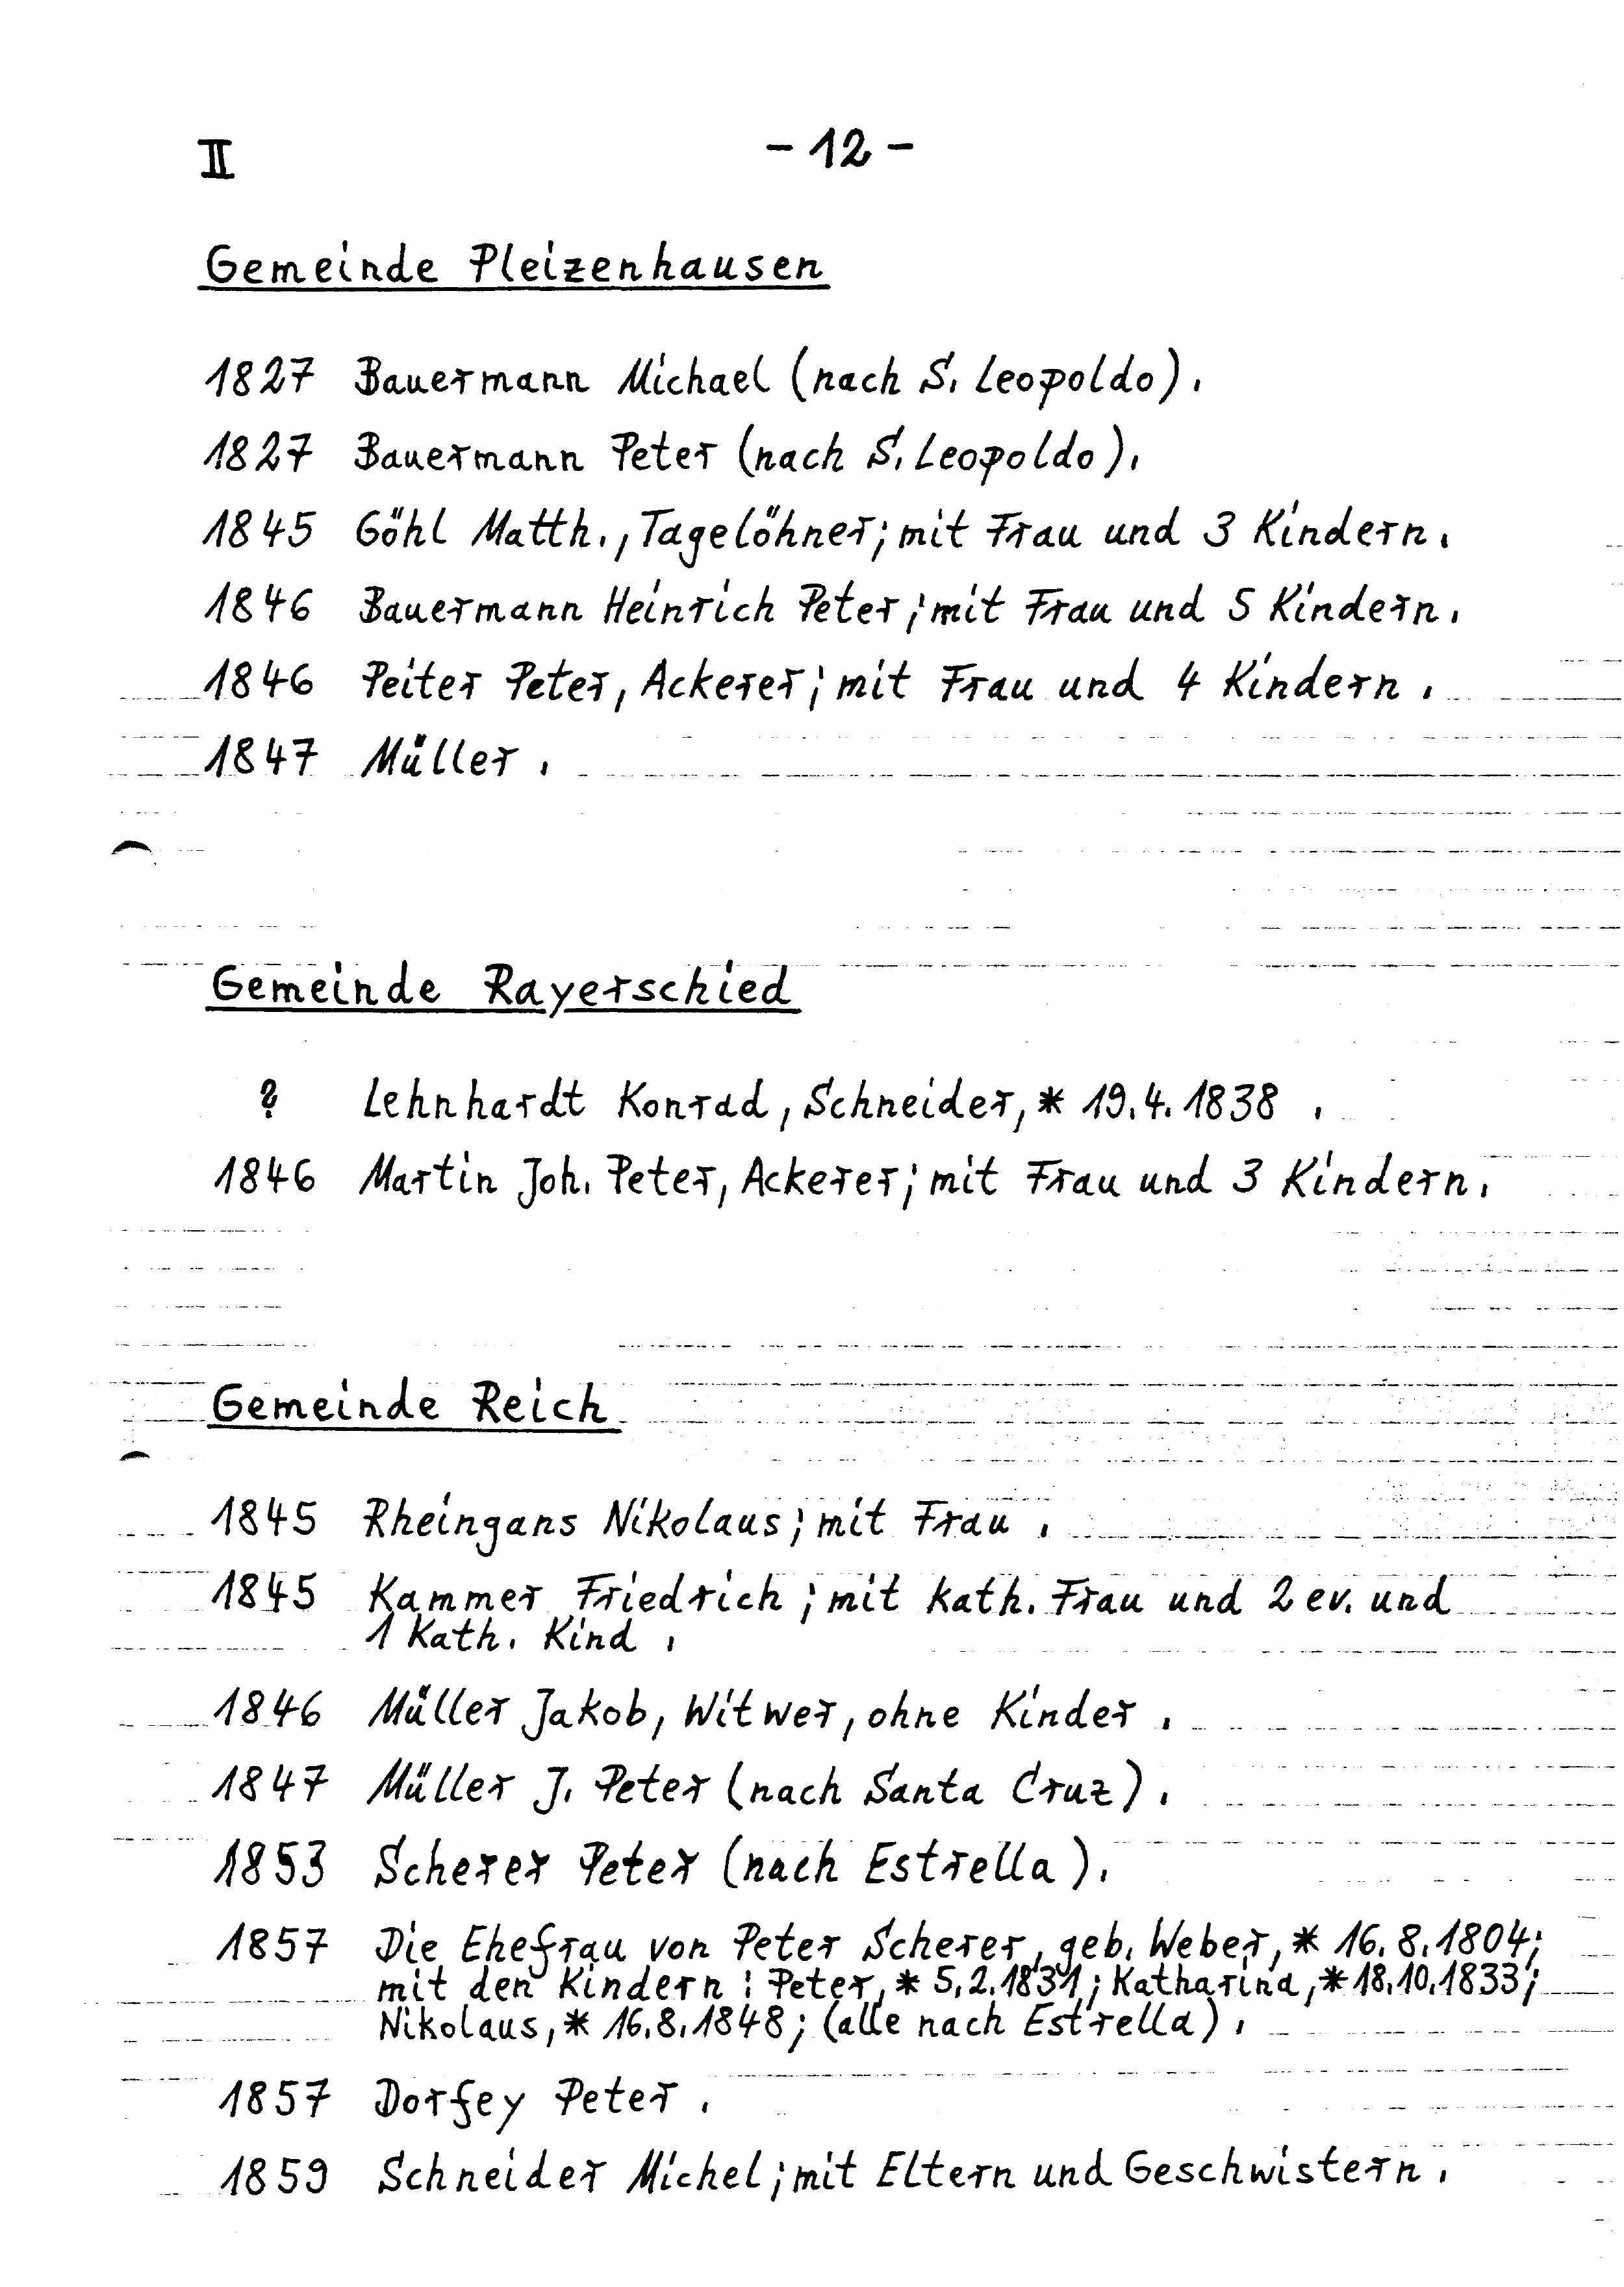 II
- 12 -
Gemeinde Pleizenhausen
1827 Bauermann Michael (nach S. Leopoldo).
1827 Bauermann Peter (nach S. Leopoldo).
1845 Göhl Matth., Tagelöhner; mit Frau und 3 Kindern.
1846 Bauermann Heinrich Peter; mit Frau und 5 Kindern.
1846 Peiter Peter, Ackerer; mit Frau und 4 Kindern.
1847 Müller.
Gemeinde Rayerschied
? Lehnhardt Konrad, Schneider, * 19.4.1838.
1846 Martin Joh. Peter, Ackerer; mit Frau und 3 Kindern.
Gemeinde Reich
1845 Rheingans Nikolaus; mit Frau.
1845 Kammer Friedrich; mit kath. Frau und 2 ev. und
1 Kath. Kind.
1846 Müller Jakob, Witwer, ohne Kinder.
1847 Müller J. Peter (nach Santa Cruz).
1853 Scherer Peter (nach Estrella).
1857 Die Ehefrau von Peter Scherer, geb. Weber, * 16.8.1804;
mit den Kindern: Peter, * 5.2.1831; Katharina, * 18.10.1833;
Nikolaus, * 16.8.1848; (alle nach Estrella).
1857 Dorfey Peter.
1859 Schneider Michel; mit Eltern und Geschwistern.